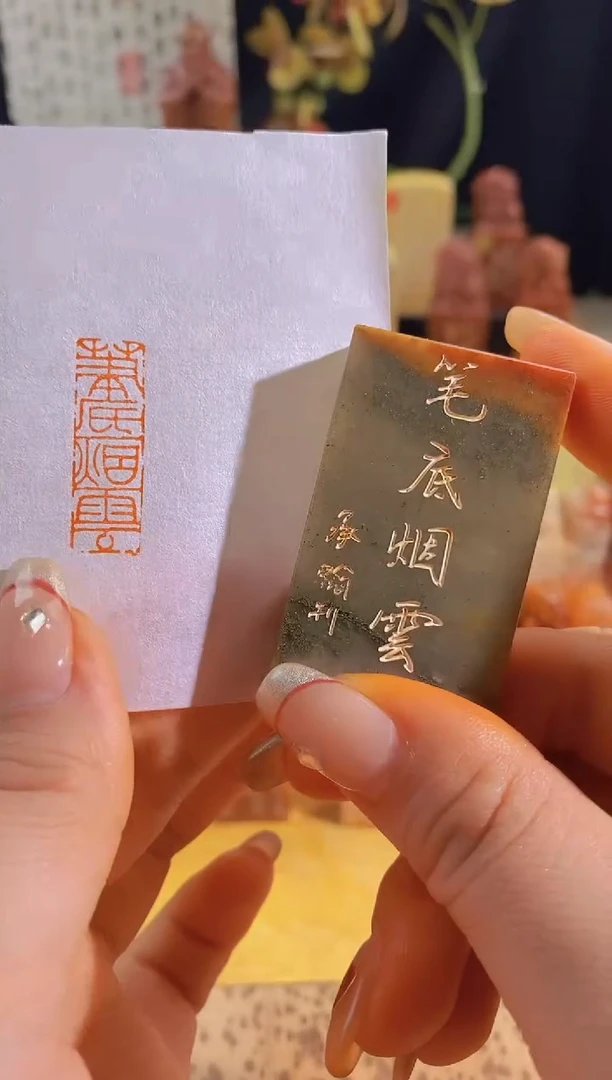 筆底烟雲
笔底烟雲
承翰刊